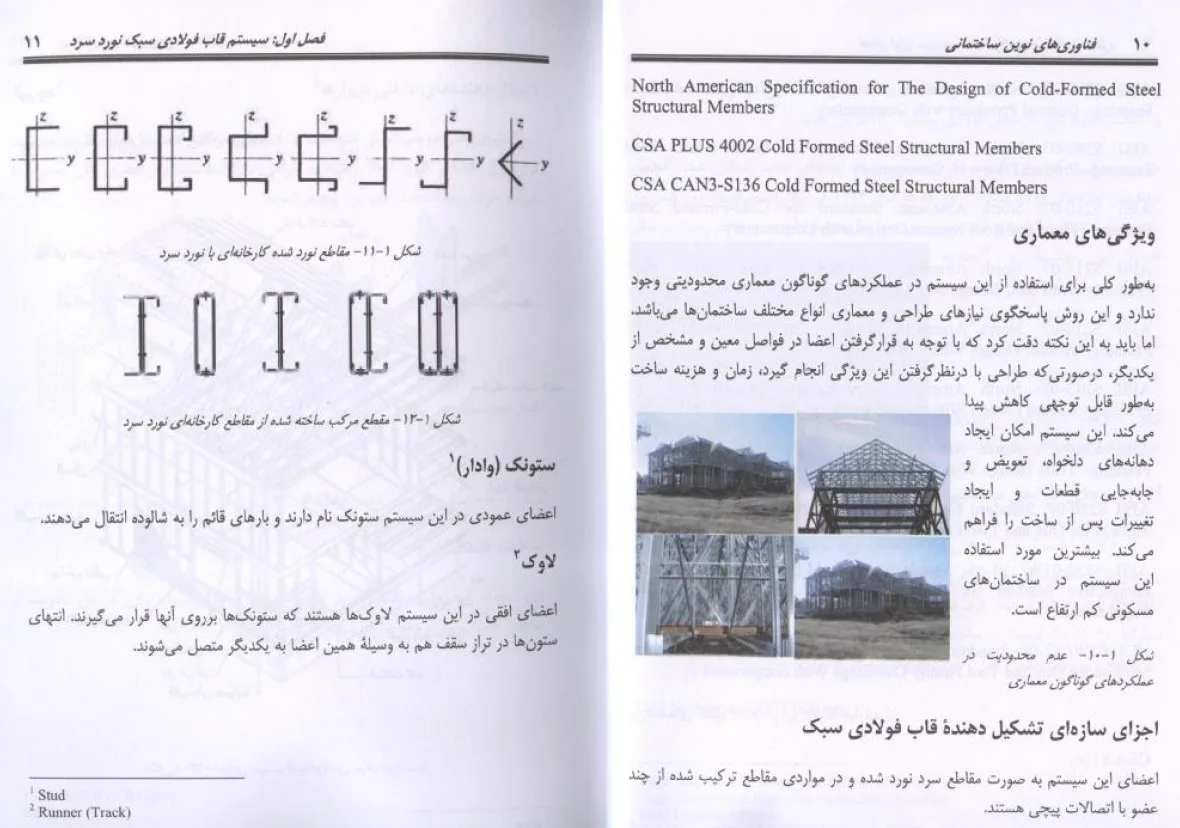 ۱۰ فناوری‌های نوین ساختمانی
North American Specification for The Design of Cold-Formed Steel
Structural Members
CSA PLUS 4002 Cold Formed Steel Structural Members
CSA CAN3-S136 Cold Formed Steel Structural Members
ویژگی‌های معماری
به‌طور کلی برای استفاده از این سیستم در عملکردهای گوناگون معماری محدودیتی وجود
ندارد و این روش پاسخگوی نیازهای طراحی و معماری انواع مختلف ساختمان‌ها می‌باشد.
اما باید به این نکته دقت کرد که با توجه به قرارگرفتن اعضا در فواصل معین و مشخص از
یکدیگر، درصورتی‌که طراحی با درنظرگرفتن این ویژگی انجام گیرد، زمان و هزینه ساخت
به‌طور قابل توجهی کاهش پیدا
می‌کند. این سیستم امکان ایجاد
دهانه‌های دلخواه، تعویض و
جابه‌جایی قطعات و ایجاد
تغییرات پس از ساخت را فراهم
می‌کند. بیشترین مورد استفاده
این سیستم در ساختمان‌های
مسکونی کم ارتفاع است.
شکل ۱-۱۰- عدم محدودیت در
عملکردهای گوناگون معماری
اجزای سازه‌ای تشکیل دهندهٔ قاب فولادی سبک
اعضای این سیستم به صورت مقاطع سرد نورد شده و در مواردی مقاطع ترکیب شده از چند
عضو با اتصالات پیچی هستند.
فصل اول: سیستم قاب فولادی سبک نورد سرد ۱۱
z z z z z z z z
y y y y y y y y
شکل ۱-۱۱- مقاطع نورد شده کارخانه‌ای با نورد سرد
شکل ۱-۱۲- مقطع مرکب ساخته شده از مقاطع کارخانه‌ای نورد سرد
ستونک (وادار)۱
اعضای عمودی در این سیستم ستونک نام دارند و بارهای قائم را به شالوده انتقال می‌دهند.
لاوک۲
اعضای افقی در این سیستم لاوک‌ها هستند که ستونک‌ها برروی آنها قرار می‌گیرند. انتهای
ستون‌ها در تراز سقف هم به وسیلهٔ همین اعضا به یکدیگر متصل می‌شوند.
1 Stud
2 Runner (Track)